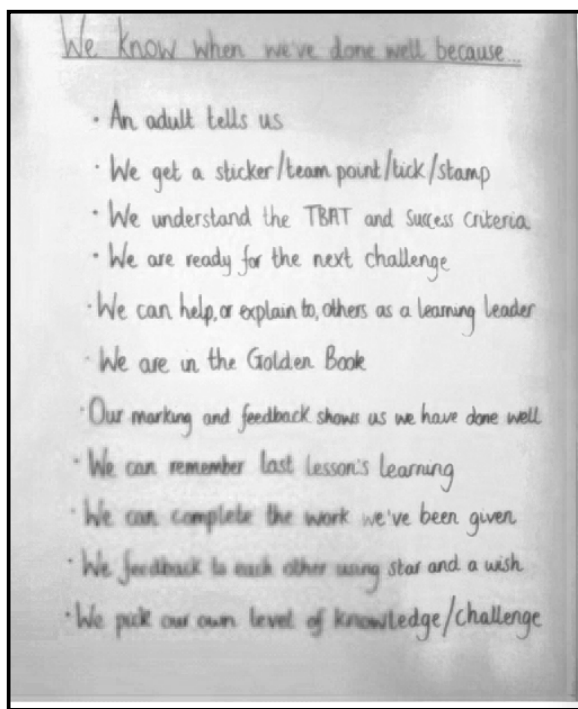 We know when we've done well because...
· An adult tells us
· We get a sticker/team point/tick/stamp
· We understand the TBAT and Success Criteria
· We are ready for the next challenge
· We can help, or explain to, others as a learning leader
· We are in the Golden Book
· Our marking and feedback shows us we have done well
· We can remember last lesson's learning
· We can complete the work we've been given
· We feedback to each other using star and a wish
· We pick our own level of knowledge/challenge